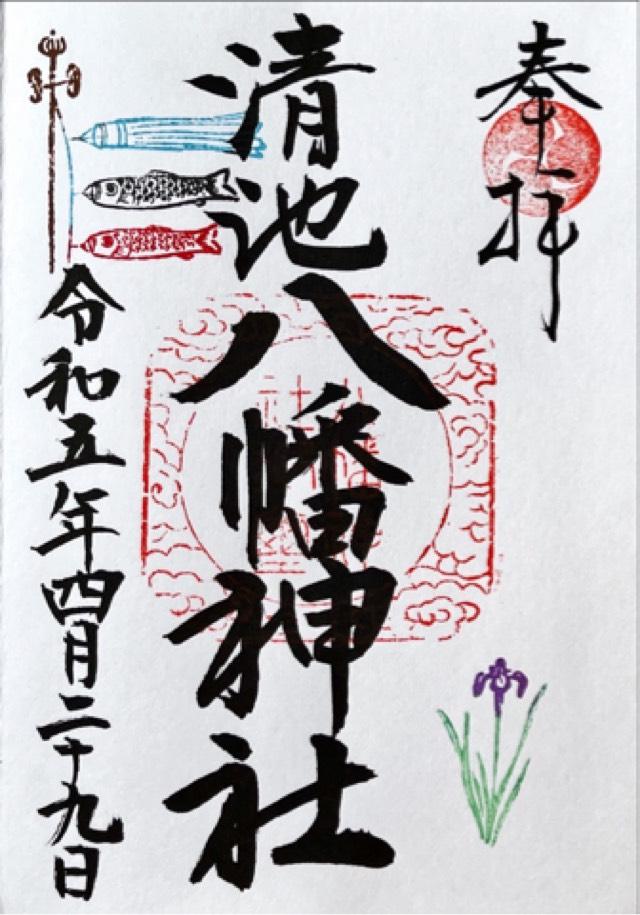 奉拝
清池八幡神社
令和五年四月二十九日